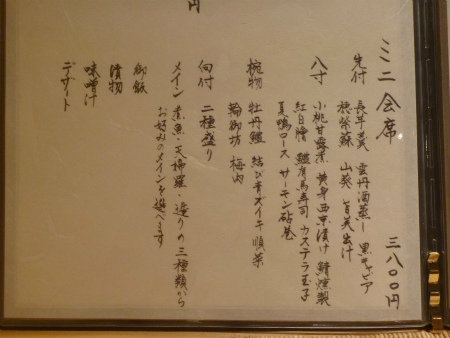 ミニ会席 三八〇〇円
先付 長芋羹 雲丹酒蒸し 黒キャビア
穂紫蘇 山葵 旨美出汁
八寸 小桃甘露煮 黄身西京漬け 鯖燻製
紅白膾 鱧有馬寿司 カステラ玉子
真鴨ロース サーモン砧巻
椀物 牡丹鱧 結び青ズイキ 順菜
鶴御坊 梅肉
向付 二種盛り
メイン 煮魚・天婦羅・造りの三種類から
お好みのメインを選べます
御飯
漬物
味噌汁
デザート
円